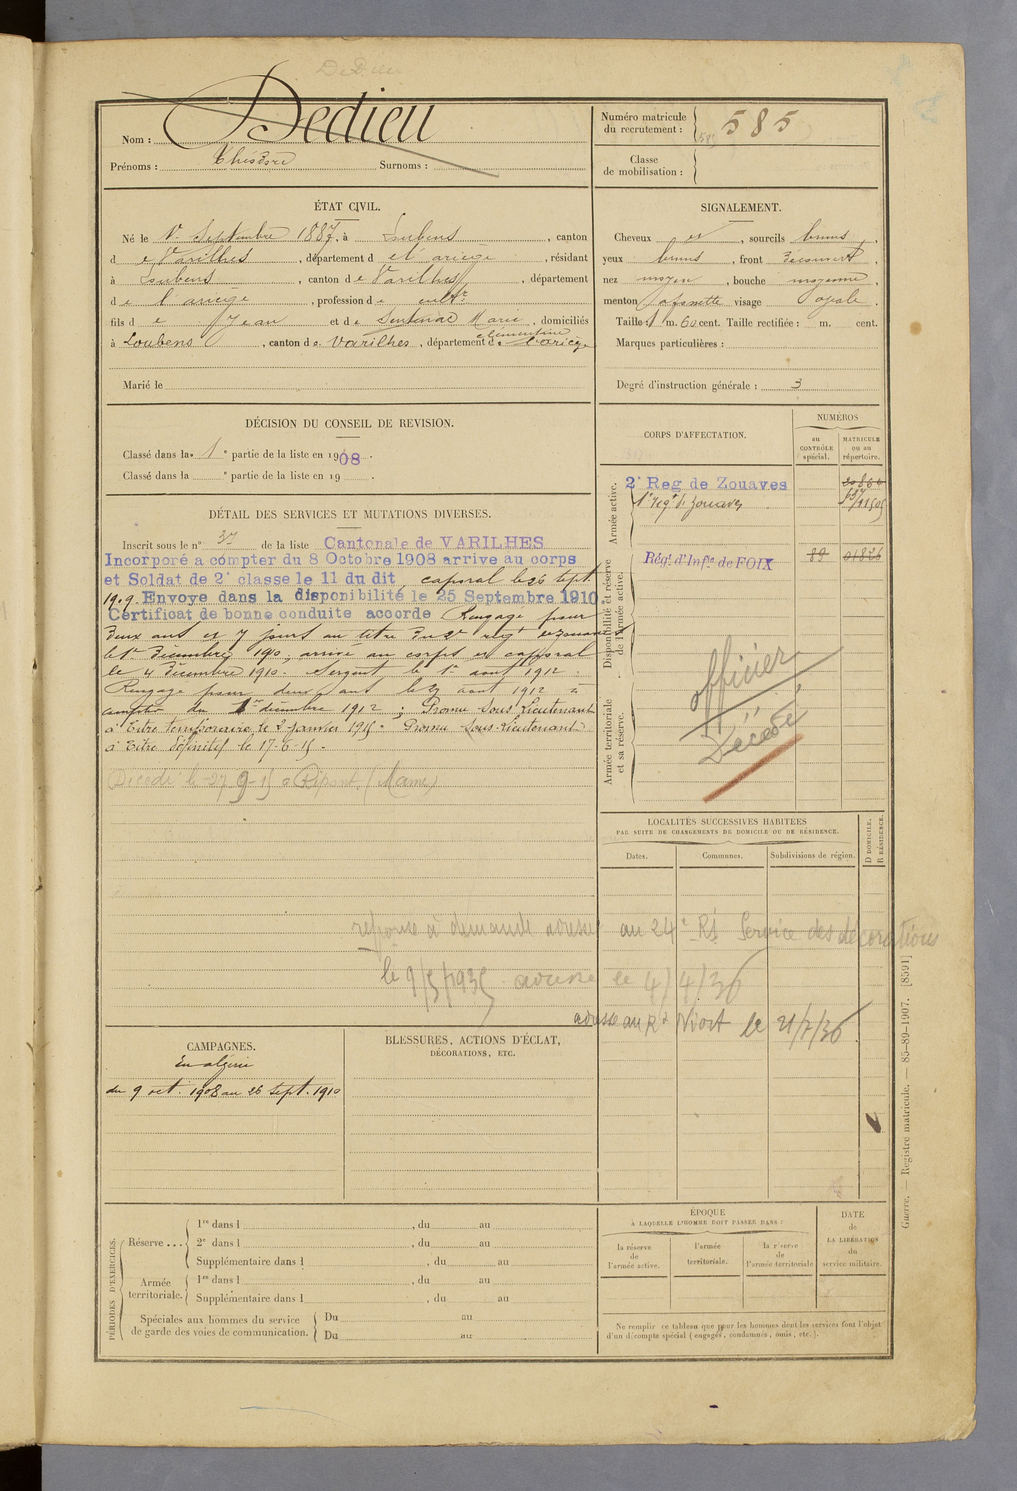 Nom : Dedieu
Prénoms : Surnoms :
Numéro matricule
du recrutement : 585
Classe
de mobilisation :
ÉTAT CIVIL.
Né le 1er Septembre 1887, à Loubens, canton
de Varilhes, département de l'ariège, résidant
à Loubens, canton de Varilhes, département
de l'ariège, profession de cultr
fils de Jean et de Sentenac Marie, domiciliés
clémentine
à Loubens, canton de Varilhes, département de l'ariège
Marié le
SIGNALEMENT.
Cheveux et, sourcils bruns,
yeux bruns, front découvert,
nez moyen, bouche moyenne,
menton à fossette visage ovale.
Taille : 1 m. 60 cent. Taille rectifiée : m. cent.
Marques particulières :
Degré d'instruction générale : 3
DÉCISION DU CONSEIL DE REVISION.
Classé dans la 1e partie de la liste en 1908.
Classé dans la e partie de la liste en 19 .
CORPS D'AFFECTATION.
NUMÉROS
au
CONTRÔLE
spécial.
MATRICULE
ou au
répertoire.
Armée active.
2e Reg de Zouaves
1er régt de zouaves
Disponibilité et réserve
de l'armée active.
Régt d'Infie de FOIX 89 01826
Armée territoriale
et sa réserve.
officier
Décédé
DÉTAIL DES SERVICES ET MUTATIONS DIVERSES.
Inscrit sous le n° 37 de la liste Cantonale de VARILHES
Incorporé à compter du 8 Octobre 1908 arrivé au corps
et Soldat de 2e classe le 11 du dit, caporal le 26 sept.
1909. Envoyé dans la disponibilité le 25 Septembre 1910
Certificat de bonne conduite accordé Rengagé pour
deux ans et 7 jours au titre du 2e régt de zouaves
le 1er décembre 1910, arrivé au corps et caporal
le 4 décembre 1910. Sergent le 1er aout 1912.
Rengagé pour deux ans le 29 aout 1912 à
compter du 1er décembre 1912 ; Promu Sous Lieutenant
à titre temporaire le 2 janvier 1915. Promu Sous-Lieutenant
à titre définitif le 17-6-15.
Décédé le 27-9-15 à Ripont (Marne)
LOCALITÉS SUCCESSIVES HABITÉES
PAR SUITE DE CHANGEMENTS DE DOMICILE OU DE RÉSIDENCE.
Dates. Communes. Subdivisions de région. D DOMICILE. R RÉSIDENCE.
réponse à demande adressée au 24e RI Service des décorations
le 9/5/1935 le 4/4/36
adressé au Rt Niort le 21/7/36
CAMPAGNES.
En algérie
du 9 oct. 1908 au 26 Sept. 1910
BLESSURES, ACTIONS D'ÉCLAT,
DÉCORATIONS, ETC.
PÉRIODES D'EXERCICES.
Réserve... 1re dans l , du au
2e dans l , du au
Supplémentaire dans l , du au
Armée
territoriale. 1re dans l , du au
Supplémentaire dans l , du au
Spéciales aux hommes du service
de garde des voies de communication. Du au
Du au
ÉPOQUE
À LAQUELLE L'HOMME DOIT PASSER DANS :
la réserve
de
l'armée active.
l'armée
territoriale.
la réserve
de
l'armée territoriale
DATE
de
LA LIBÉRATION
du
service militaire.
Ne remplir ce tableau que pour les hommes dont les services font l'objet
d'un décompte spécial (engagés, condamnés, omis, etc.).
Guerre. — Registre matricule. — 85-89-1907. [8591]